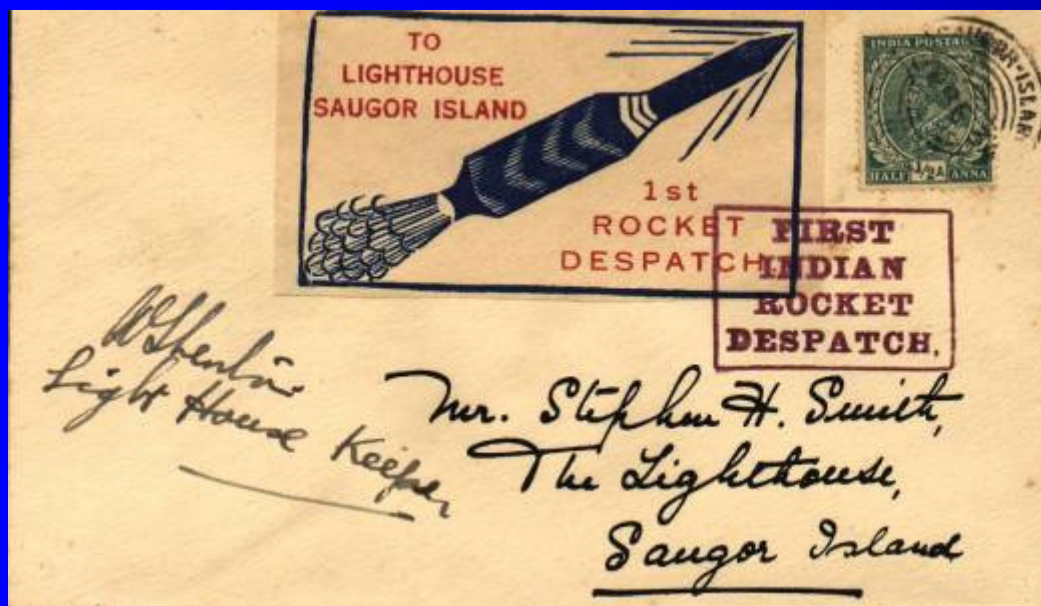 TO
LIGHTHOUSE
SAUGOR ISLAND
1st
ROCKET
DESPATCH
INDIA POSTAGE
HALF ANNA
FIRST
INDIAN
ROCKET
DESPATCH.
Light House Keeper
Mr. Stephen H. Smith,
The Lighthouse,
Saugor Island